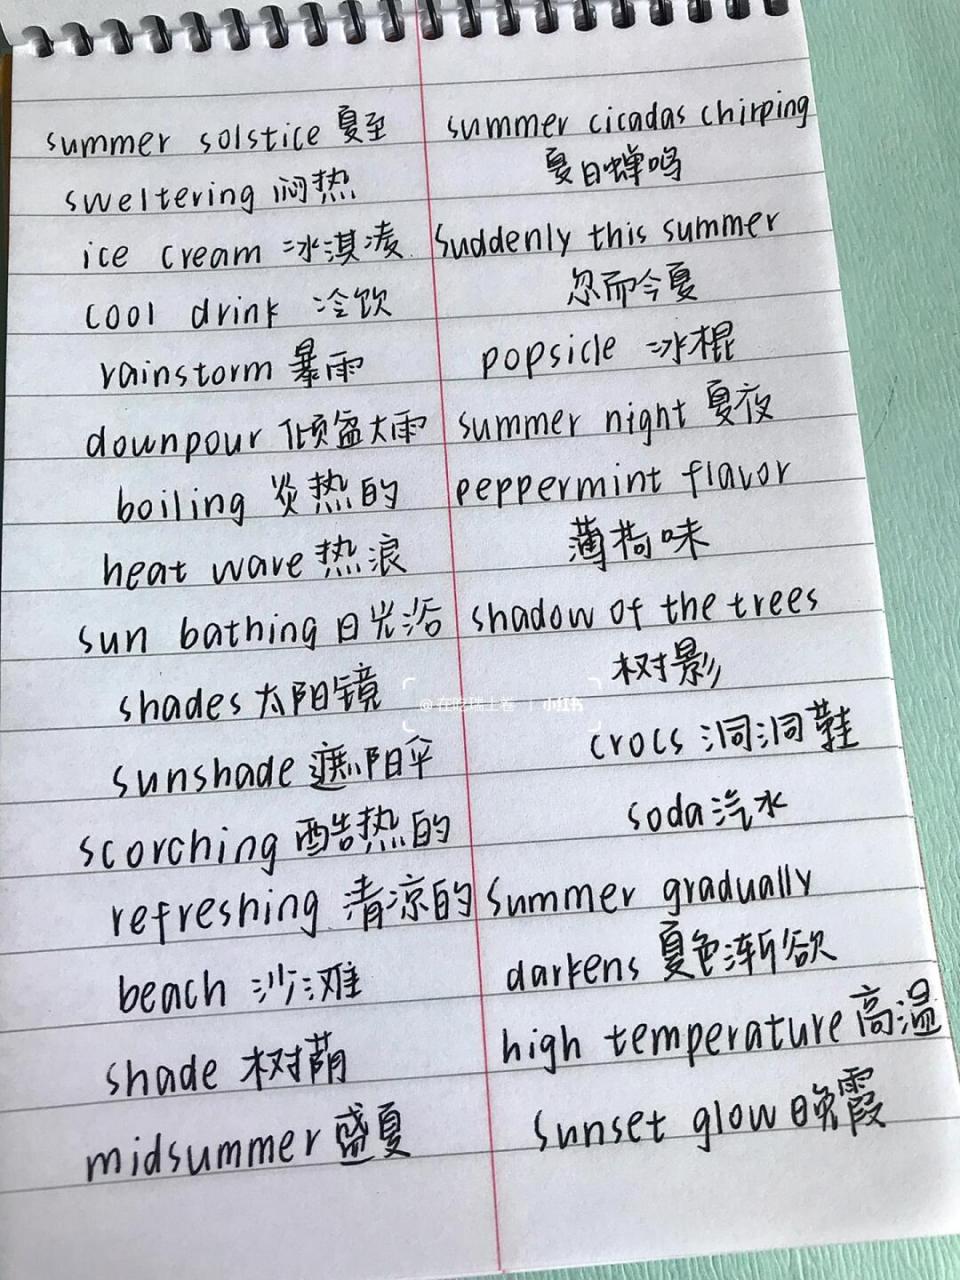 summer solstice 夏至
sweltering 闷热
ice cream 冰淇凌
cool drink 冷饮
rainstorm 暴雨
downpour 倾盆大雨
boiling 炎热的
heat wave 热浪
sun bathing 日光浴
shades 太阳镜
sunshade 遮阳伞
scorching 酷热的
refreshing 清凉的
beach 沙滩
shade 树荫
midsummer 盛夏
summer cicadas chirping
夏日蝉鸣
Suddenly this summer
忽而今夏
popsicle 冰棍
summer night 夏夜
peppermint flavor
薄荷味
shadow of the trees
树影
crocs 洞洞鞋
soda 汽水
Summer gradually
darkens 夏色渐欲
high temperature 高温
Sunset glow 晚霞
小红书